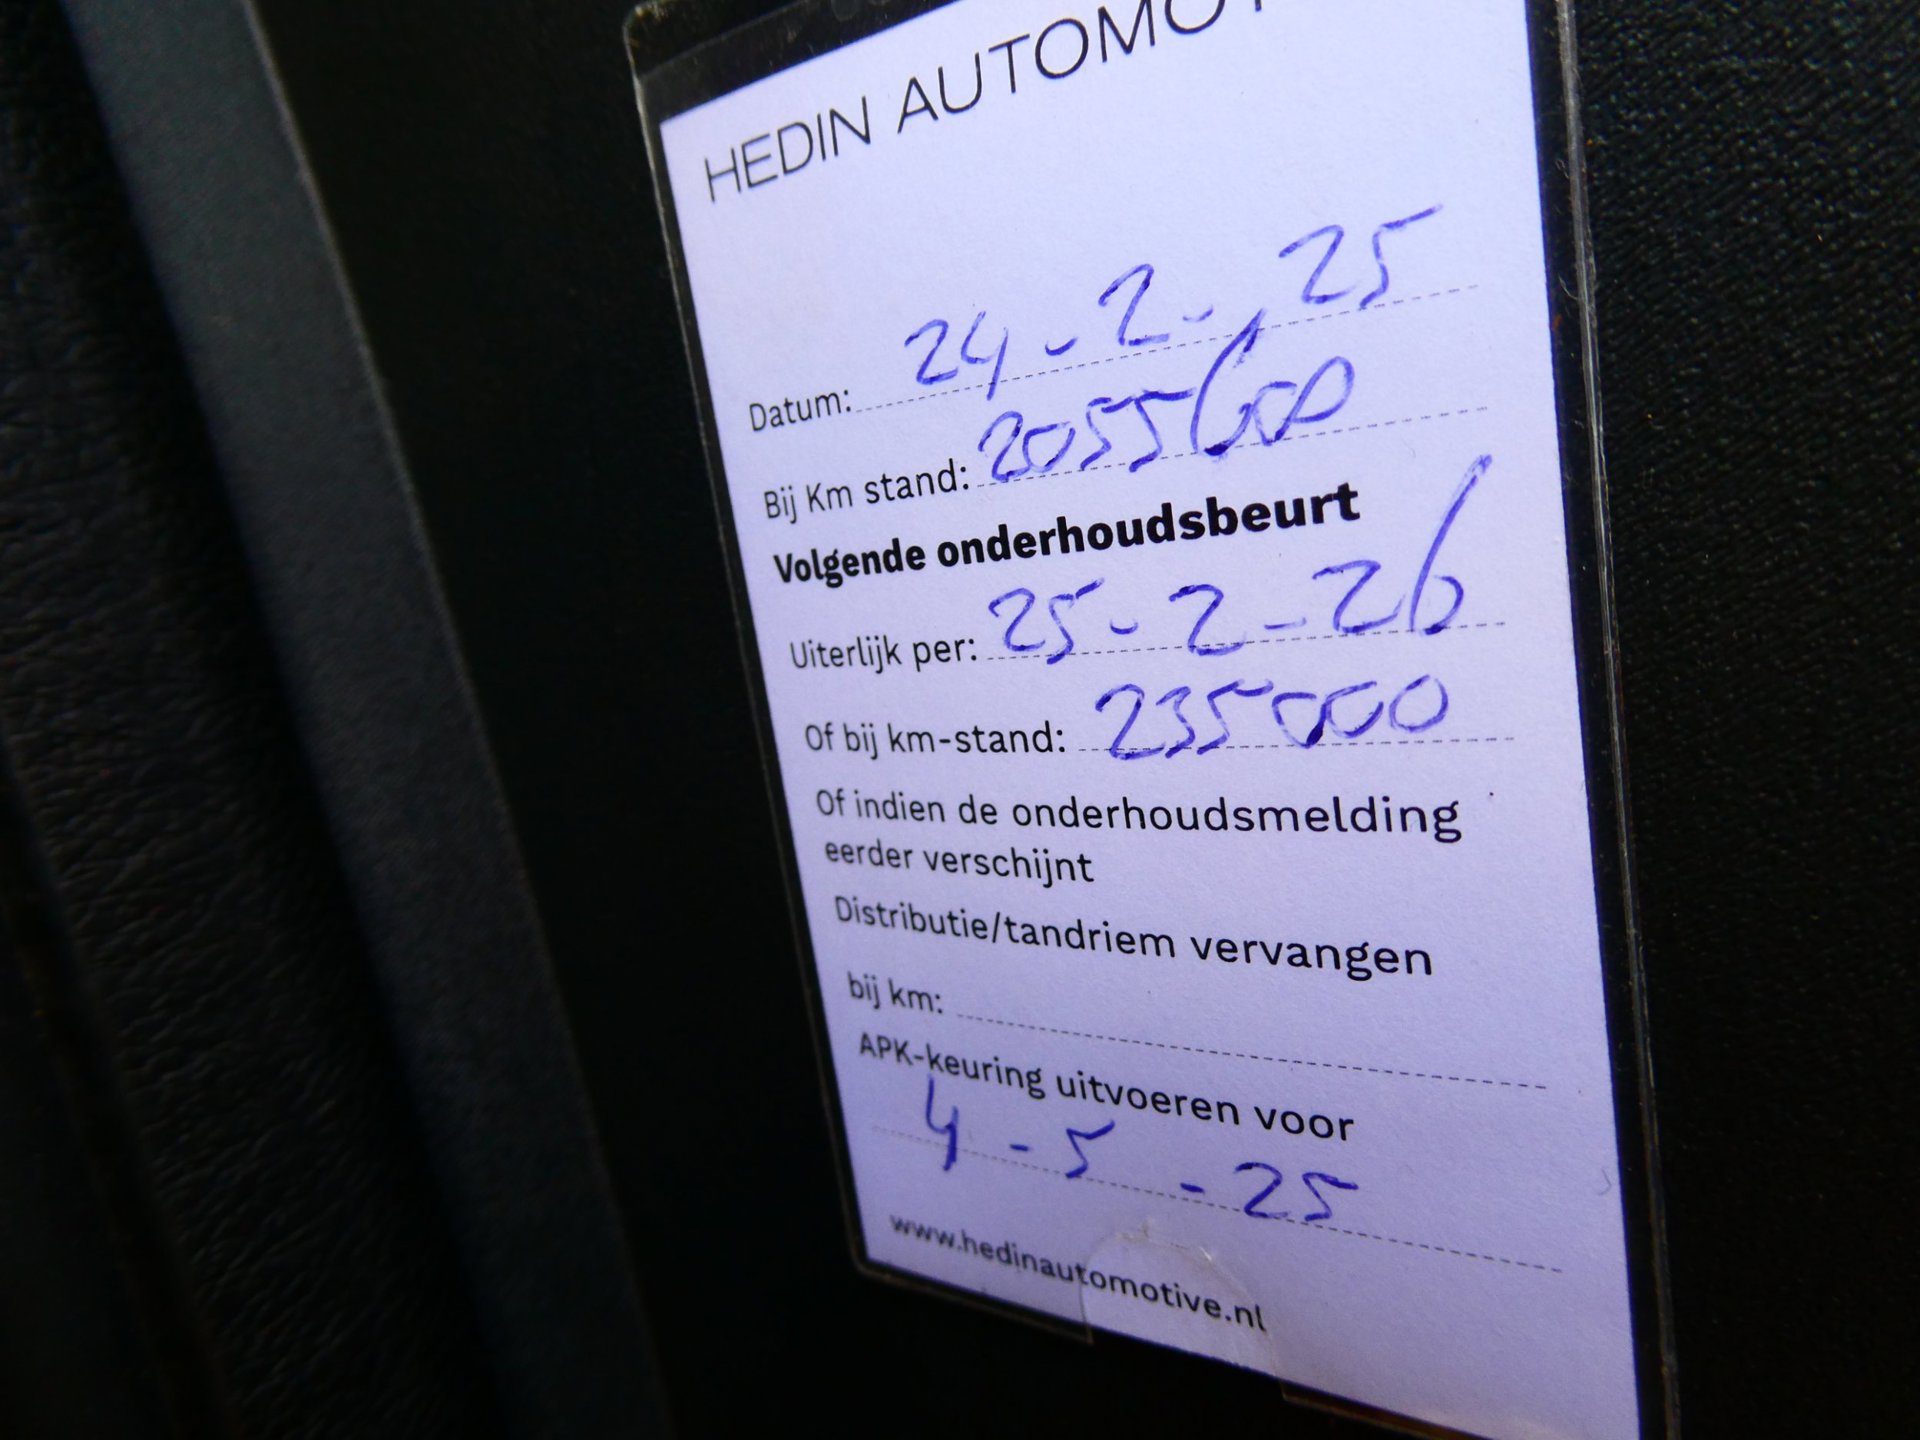 HEDIN AUTOMOT
Datum: 24-2-25
Bij Km stand: 2055600
Volgende onderhoudsbeurt
Uiterlijk per: 25-2-26
Of bij km-stand: 235000
Of indien de onderhoudsmelding
eerder verschijnt
Distributie/tandriem vervangen
bij km:
APK-keuring uitvoeren voor
4-5-25
www.hedinautomotive.nl